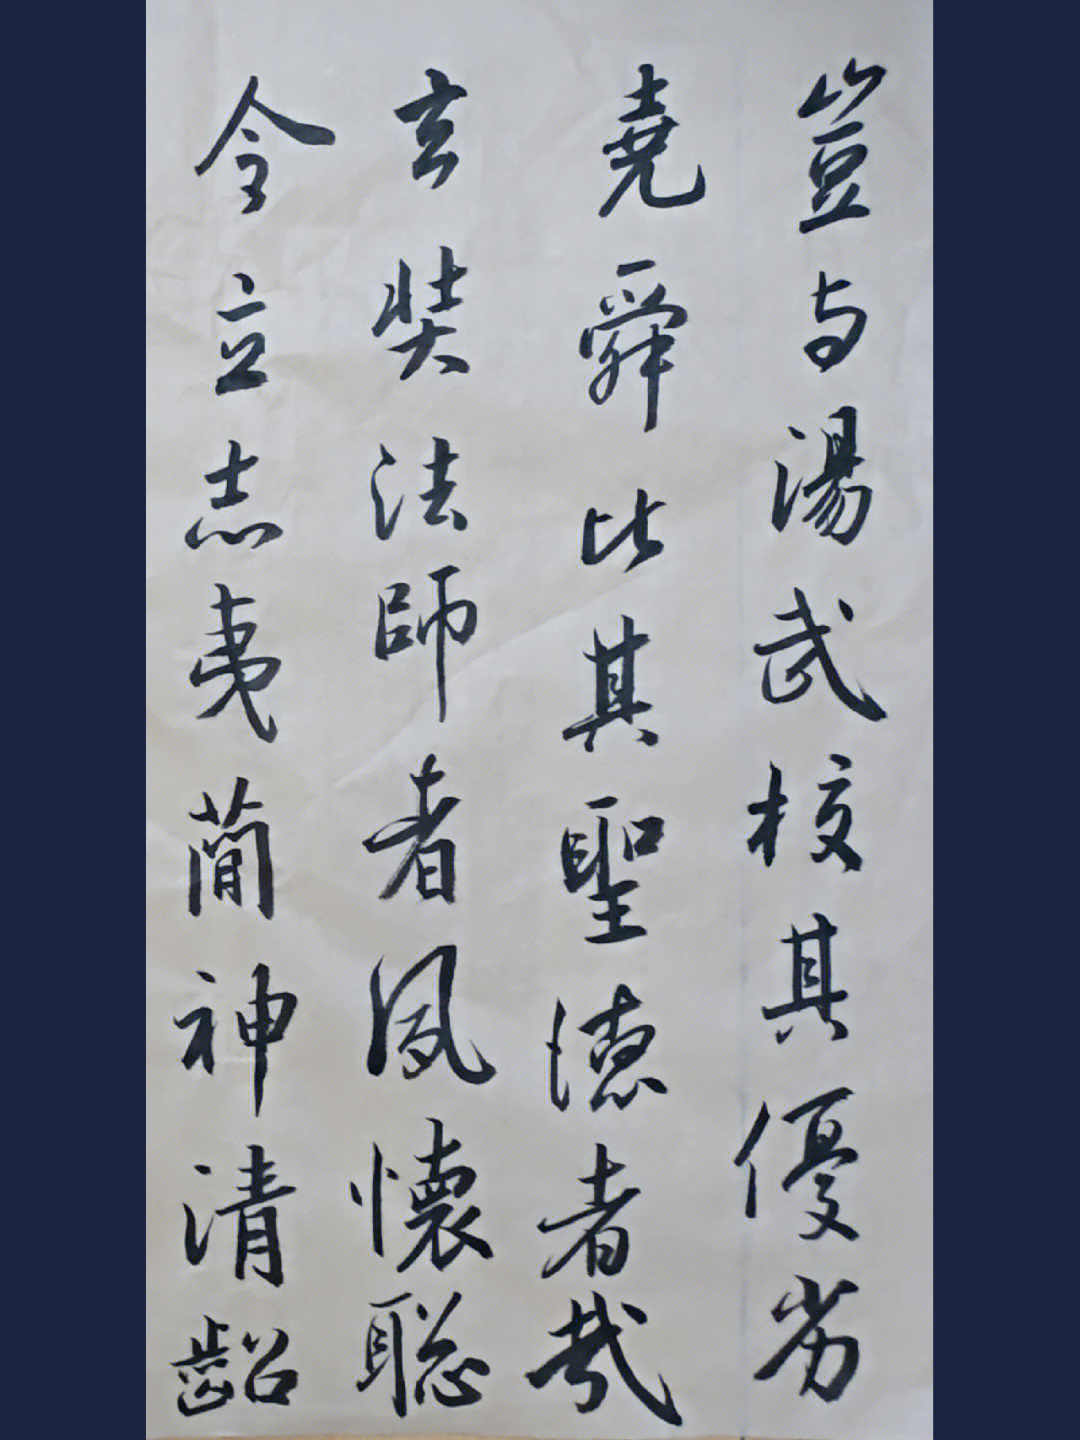 豈与湯武校其優劣
堯舜比其聖德者哉
玄奘法師者夙懷聡
令立志夷蕳神清齠